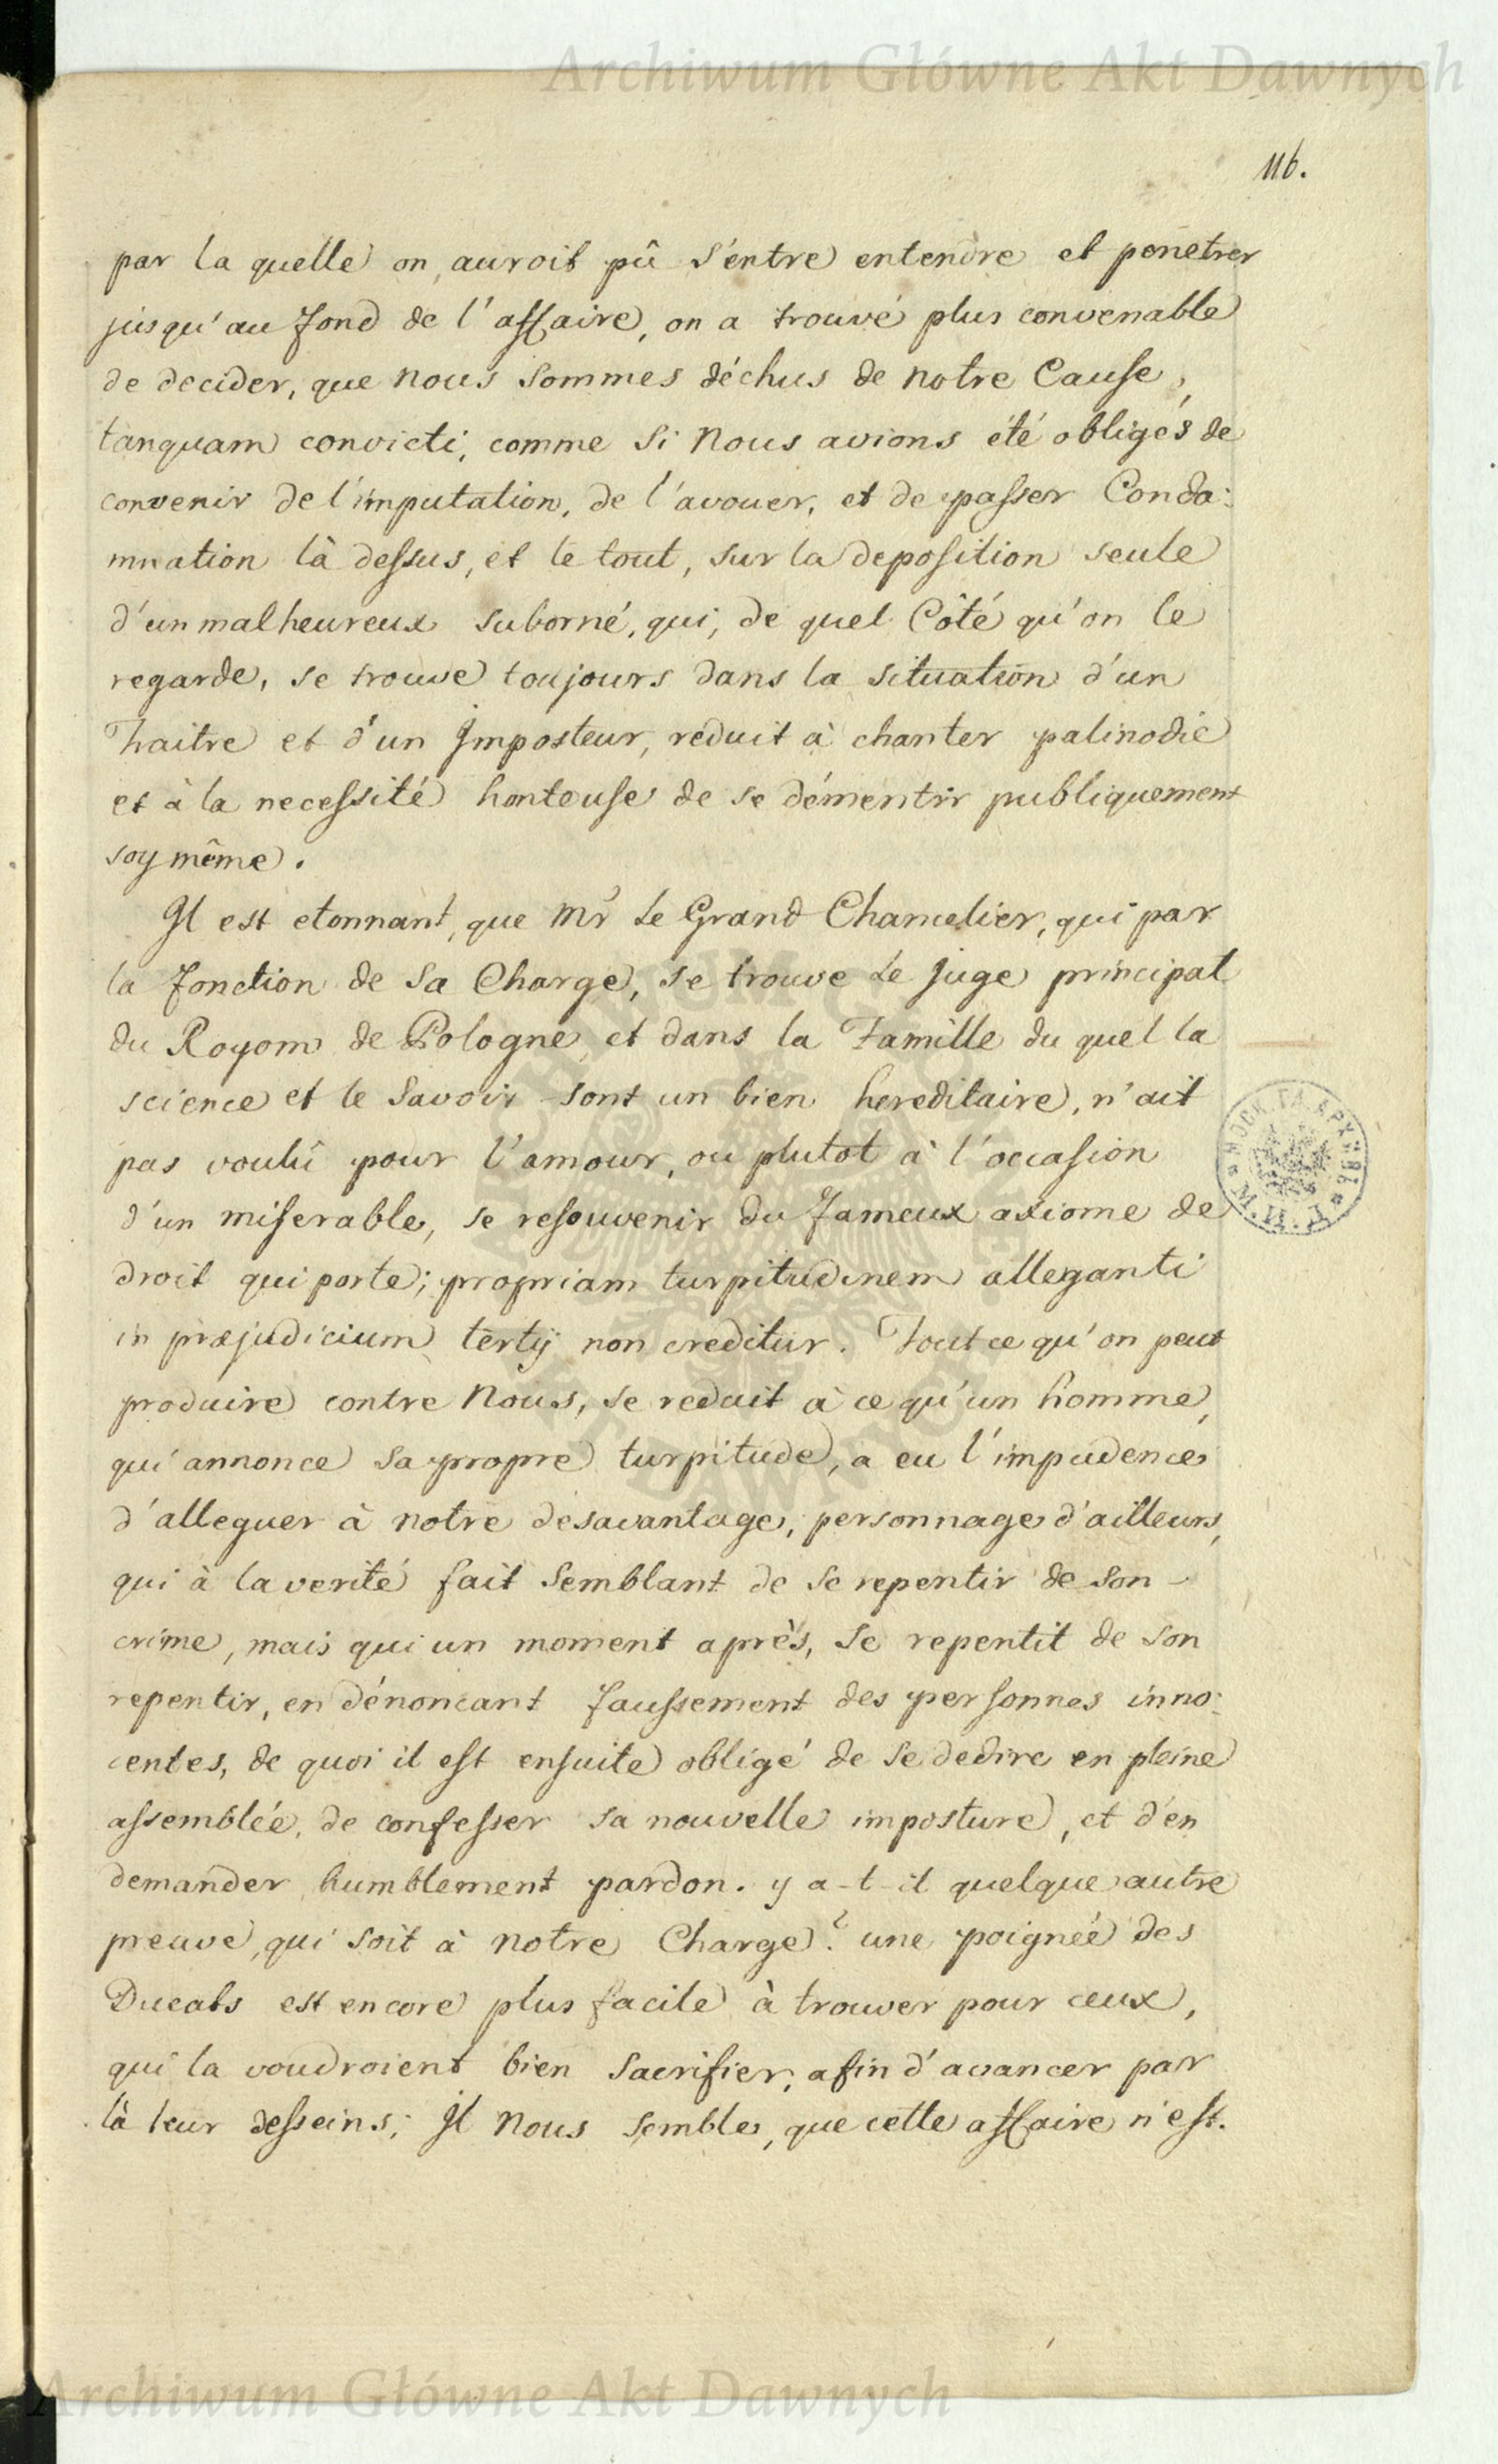 Archiwum Główne Akt Dawnych
116.
par la quelle on auroit pû s'entre entendre et penetrer
jusqu'au fond de l'affaire, on a trouvé plus convenable
de decider, que nous sommes déchus de notre Cause,
tanquam convicti, comme si nous avions été obligés de
convenir de l'imputation, de l'avouer, et de passer Conda:
mnation là dessus, et le tout, sur la deposition seule
d'un malheureux suborné, qui, de quel Côté qu'on le
regarde, se trouve toujours dans la situation d'un
Traitre et d'un Imposteur, reduit à chanter palinodie
et à la necessité honteuse de se démentir publiquement
soy même.
Il est etonnant, que Mr Le Grand Chancelier, qui par
la fonction de Sa Charge, se trouve Le juge principal
du Royom de Pologne et dans la Famille du quel la
science et le Savoir sont un bien hereditaire, n'ait
pas voulû pour l'amour, ou plutot à l'occasion
d'un miserable, se resouvenir du fameux axiome de
droit qui porte; propriam turpitudinem alleganti
in præjudicium tertij non creditur. Tout ce qu'on peut
produire contre Nous, se reduit à ce qu'un homme,
qui annonce sa propre turpitude, a eu l'impudence
d'alleguer à notre desavantage, personnage d'ailleurs,
qui à la verité fait semblant de se repentir de son -
crime, mais qui un moment après, se repentit de son
repentir, en dénoncant faussement des personnes inno:
centes, de quoi il est ensuite obligé de se dedire en pleine
assemblée, de confesser sa nouvelle imposture, et d'en
demander humblement pardon. y a-t-il quelque autre
preuve, qui soit à notre Charge? une poigneé des
Ducats est encore plus facile à trouver pour ceux,
qui la voudroient bien Sacrifier, afin d'avancer par
là leur desseins; Il nous semble, que cette affaire n'est.
Archiwum Główne Akt Dawnych